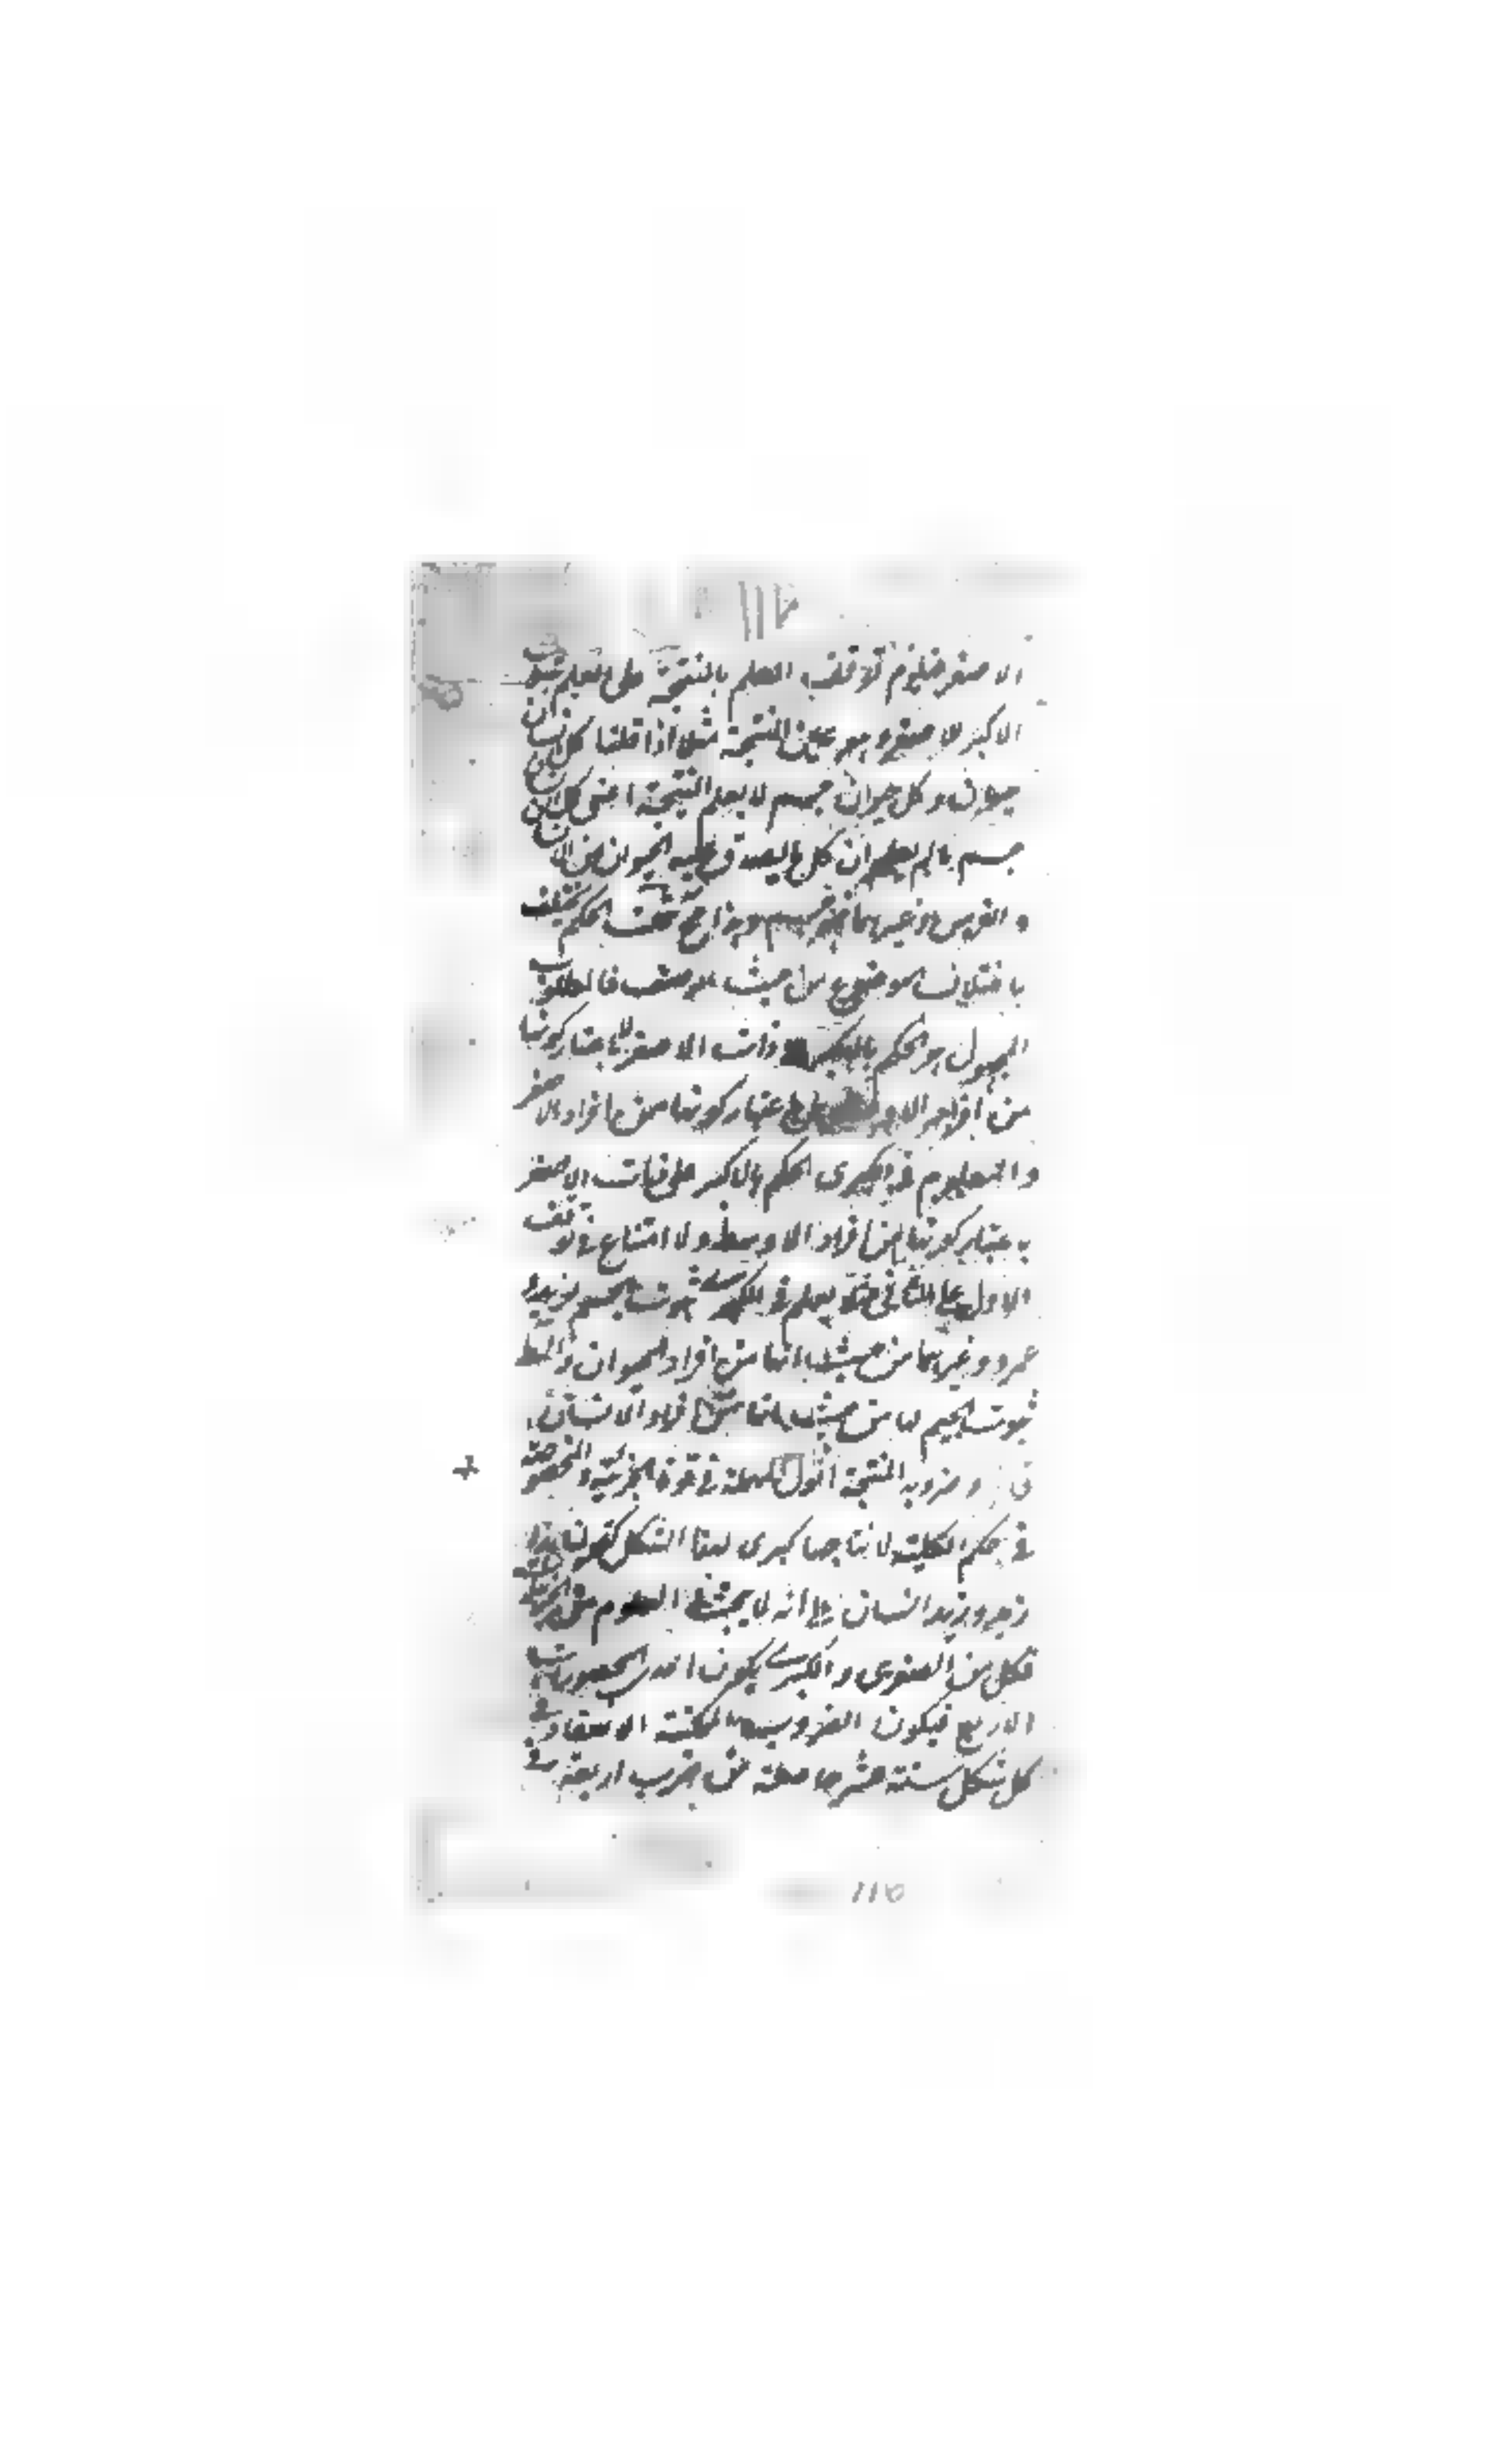 الاصغر فيلزم توقف العلم بالنتيجة على العلم بثبوت
الاكبر للاصغر وهو عين النتيجة مثلا اذا قلنا كل انسان
حيوان وكل حيوان جسم لا يعلم النتيجة اعنى كل انسان
جسم ما لم يعلم ان كل ما يصدق عليه الحيوان من الانسان
والفرس وغيرهما جسم
باختلاف الموضوع من حيث الوصف فالمطلوب
المجهول هو الحكم بالاكبر ذات الاصغر لا باعتبار كونها
من افراد الاوسط باعتبار كونها من افراد الاصغر
والمعلوم فى الكبرى الحكم بالاكبر على ذات الاصغر
باعتبار كونها من افراد الاوسط ولا امتناع فى توقف
الاول على الثانى مثلا يعلم فى الكبرى ثبوت الجسم لزيد و
عمرو وغيرهما من حيث انها من افراد الحيوان والمط
ثبوت الجسم لها من حيث انها من افراد الانسان
وضروبه المنتجة اقول المهملة فى قوة الجزئية والشخصية
فى حكم الكلية لانتاجها كبرى لهذا الشكل كقولنا هذا
زيد وزيد انسان على انه لا يبحث فى العلوم عن الجزئيات
فكل من الصغرى والكبرى يكون احدى المحصورات
الاربع فيكون الضروب الممكنة الانعقاد فى
كل شكل ستة عشر حاصلة من ضرب اربعة فى